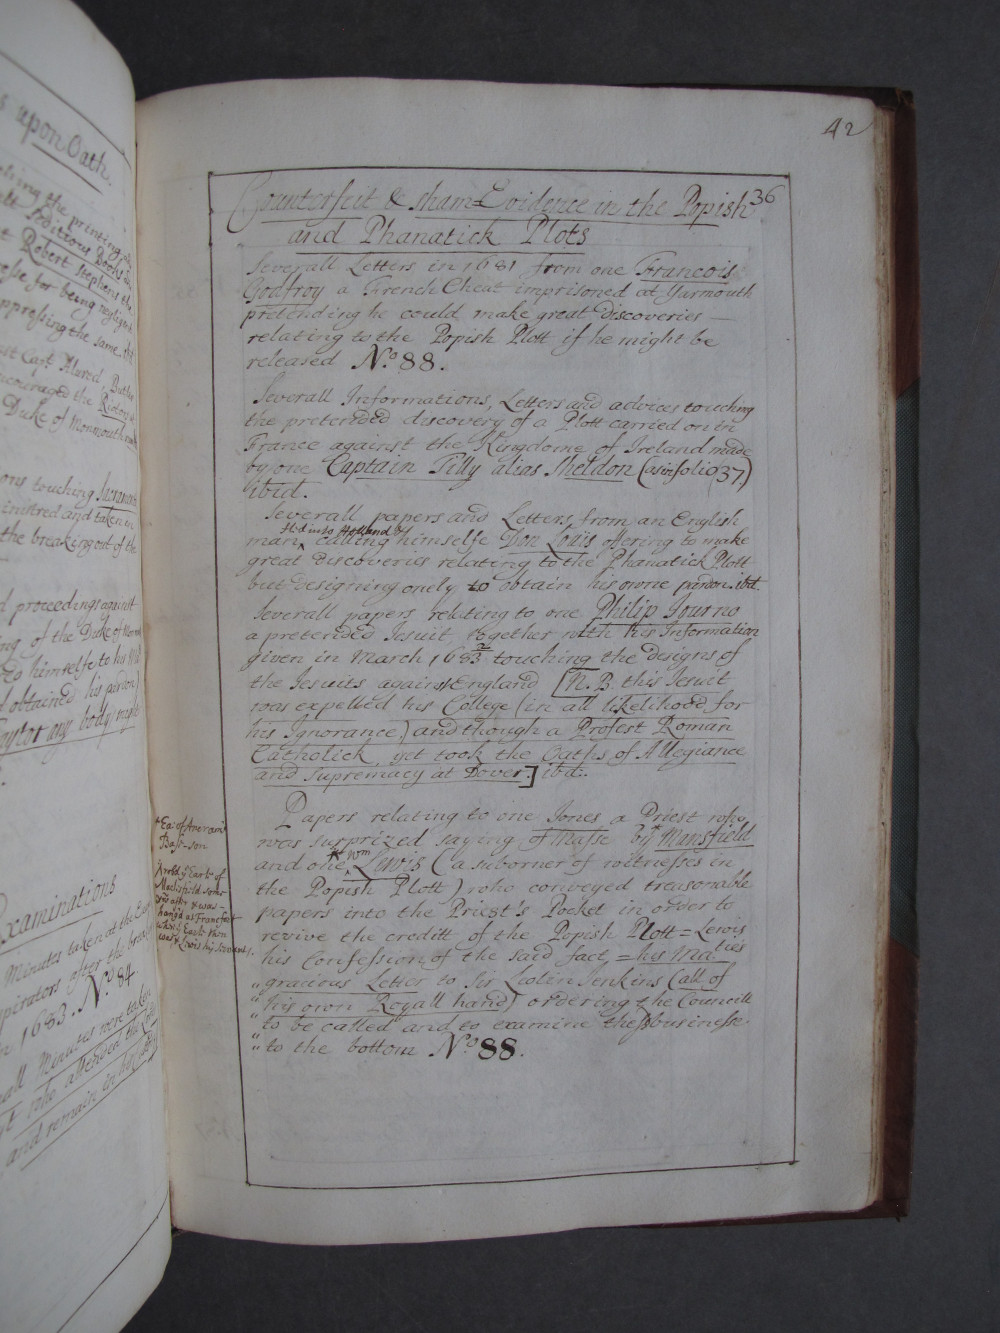 s upon Oath.
ting the printing
Seditious Books
t Robert Stephens the
for being negligent
ppressing the same
st Capt. Alured, Butler
ncouraged the
Duke of Monmouth
ons touching Sacrament
inistred and taken in
the breaking out of the
d proceedings against
ng of the Duke of Monm
red himselfe to his
d obtained his pardon
any body
Examinations
Minutes taken at the
spirators after the
n 1683. No. 84.
all Minutes were taken
who attended the
and remain in his
42
36
Counterfeit & sham=Evidence in the Popish
and Phanatick Plots
Severall Letters in 1681 from one Francois
Godfroy a French Cheat imprisoned at Yarmouth
pretending he could make great discoveries —
relating to the Popish Plott if he might be
released No. 88.
Severall Informations, Letters and advices touching
the pretended discovery of a Plott carried on in
France against the Kingdome of Ireland made
by one Captain Tilly alias Sheldon (as in folio 37)
ibid.
Severall papers and Letters from an English
fled into Holland &
man, calling himselfe Don Louis offering to make
great discoveries relating to the Phanatick Plott
but designing onely to obtain his owne pardon. ibd.
Severall papers relating to one Philip Journo
a pretended Jesuit together with his Information
given in March 1683/2 touching the designs of
the Jesuits against England [N.B. this Jesuit
was expelled his College (in all likelihood for
his Ignorance) and though a Profest Roman
Catholick, yet took the Oaths of Allegiance
and supremacy at Dover.] ibd.
Papers relating to one Jones a Priest who
was surprized saying of Masse by * Mansfield
Wm
and one Lewis (a suborner of witnesses in
the Popish Plott) who conveyed treasonable
papers into the Priest's Pocket in order to
revive the creditt of the Popish Plott = Lewis
his Confession of the said fact, = his Ma ties
" gracious Letter to Sir Leolin Jenkins (all of
" his own Royall hand) ordering the Councill
" to be called and to examine the businesse
" to the bottom No. 88.
Ea: of
Bast-son
Earle of
Maclisfield
was
hang'd at Francfort
Lewis his servant.